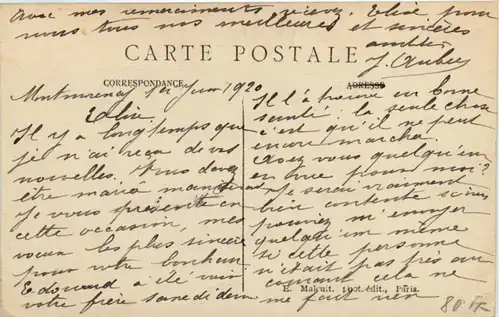 avec mes remerciements recevez Elise pour
vous tous nos meilleures et sincères
amitiés
J. Aubry
CARTE POSTALE
CORRESPONDANCE
ADRESSE
Montmorency 1er Juin 1920
Il y a longtemps que
je n'ai reçu de vos
nouvelles. Vous devez
être marié maintenant
Je vous présente en
cette occasion, mes
voeux les plus sincères
pour votre bonheur
Edouard a été voir
votre frère samedi dern
Il l'a trouvé en bonne
santé. la seule chose
c'est qu'il ne peut
encore marcher.
Avez vous quelqu'un
en vue pour moi?
Je serai vraiment
bien contente si vous
pouviez m'envoyer
quelqu'un même
si cette personne
n'était pas très au
courant cela ne
me fait rien
E. Malcuit, phot.-édit., Paris.